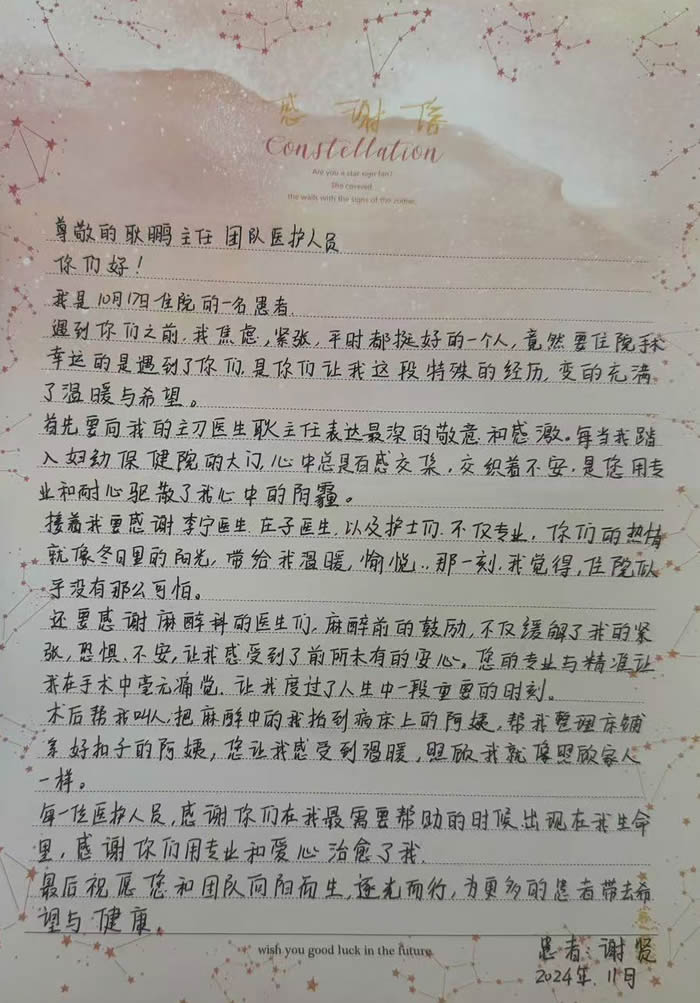 感谢信
Constellation
Are you a star sign fan?
She covered
the walls with the signs of the zodiac.
尊敬的耿鹏主任团队医护人员
你们好！
我是10月17日住院的一名患者.
遇到你们之前,我焦虑,紧张,平时都挺好的一个人,竟然要住院手术
幸运的是遇到了你们,是你们让我这段特殊的经历,变的充满
了温暖与希望。
首先要向我的主刀医生耿主任表达最深的敬意和感激。每当我踏
入妇幼保健院的大门,心中总是百感交集,交织着不安,是您用专
业和耐心驱散了我心中的阴霾。
接着我要感谢李宁医生 庄子医生,以及护士们.不仅专业,你们的热情
就像冬日里的阳光,带给我温暖,愉悦..那一刻,我觉得,住院似
乎没有那么可怕。
还要感谢麻醉科的医生们,麻醉前的鼓励,不仅缓解了我的紧
张,恐惧,不安,让我感受到了前所未有的安心。您的专业与精准让
我在手术中毫无痛觉.让我度过了人生中一段重要的时刻。
术后帮我叫人,把麻醉中的我抬到病床上的阿姨,帮我整理床铺
系好扣子的阿姨,您让我感受到温暖,照顾我就像照顾家人
一样。
每一位医护人员,感谢你们在我最需要帮助的时候出现在我生命
里,感谢你们用专业和爱心治愈了我.
最后祝愿您和团队向阳而生,逐光而行,为更多的患者带去希
望与健康.
wish you good luck in the future
患者:谢贤
2024年.11月